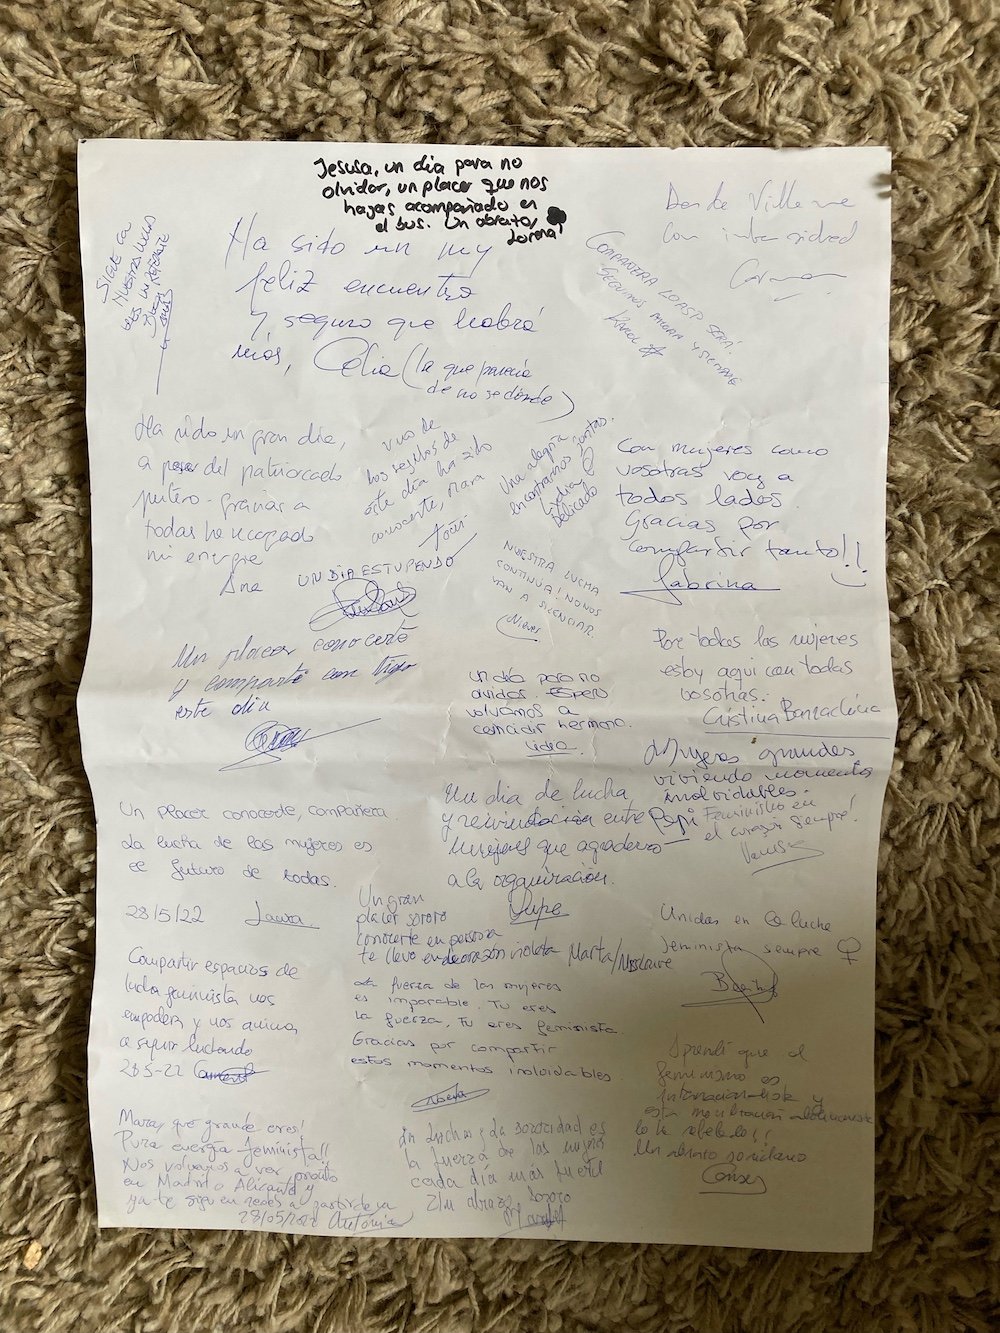 Jesusa, un día para no
olvidar, un placer que nos
hayas acompañado en
el bus. Un abrazo,
Lorena!
SIGUE CON
NUESTRA LUCHA
ERES UN REFERENTE
Desde Villena
con intensidad
Carmen
Ha sido un muy
feliz encuentro
y, seguro que habrá
más, Celia (la que parecía
de no se dónde)
COMPAÑERA LOASP SERÁ!
SEGUIMOS AHORA Y SIEMPRE
KAROL
Ha sido un gran día,
a pesar del patriarcado
putero. gracias a
todas he recargado
mi energía
Ana
uno de
los regalos de
este día ha sido
conocerte, Mara
Una alegría
encontrarnos juntas.
Lydia
Delicado
Con mujeres como
vosotras voy a
todos lados.
Gracias por
compartir tanto!!
Sabrina
UN DÍA ESTUPENDO
NUESTRA LUCHA
CONTINÚA! NO NOS
VAN A SILENCIAR.
Nieves
Un placer conocerte
y compartir contigo
este día
Por todas las mujeres
estoy aquí con todas
vosotras.
Cristina Barrachina
un día para no
olvidar. Espero
volvamos a
coincidir hermana.
Lidia.
Mujeres grandes
viviendo momentos
inolvidables.
Papi
Feminismo en
el corazón siempre!
Un día de lucha
y reivindicación entre
mujeres que agradezco
a la organización.
Lupe
Un placer conocerte, compañera
La lucha de las mujeres es
el futuro de todas.
28/5/22 Laura
Un gran
placer sororo
conocerte en persona
te llevo en el corazón violeta Marta/
Unidas en la lucha
feminista siempre ♀
Compartir espacios de
lucha feminista nos
empodera y nos anima
a seguir luchando
28-5-22
La fuerza de las mujeres
es imparable. Tú eres
la fuerza, tú eres feminista.
Gracias por compartir
estos momentos inolvidables.
Aprendí que el
feminismo es
internacionalista y
esta movilización abolicionista
lo ha rebelado!!
Un abrazo sororidario
Mara, qué grande eres!
Pura energía feminista!!
Nos volvamos a ver pronto
en Madrid o Alicante y
ya te sigo en redes a partir de ya
28/05/2022 Antonia
La lucha y la sororidad es
la fuerza de las mujeres
cada día más fuerte
Un abrazo sororo